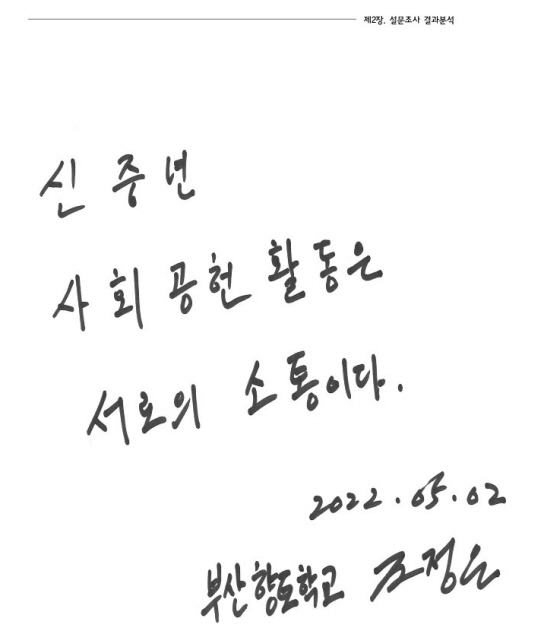 제2장. 설문조사 결과분석
신중년
사회공헌활동은
서로의 소통이다.
2022.05.02
부산향도학교 조정은